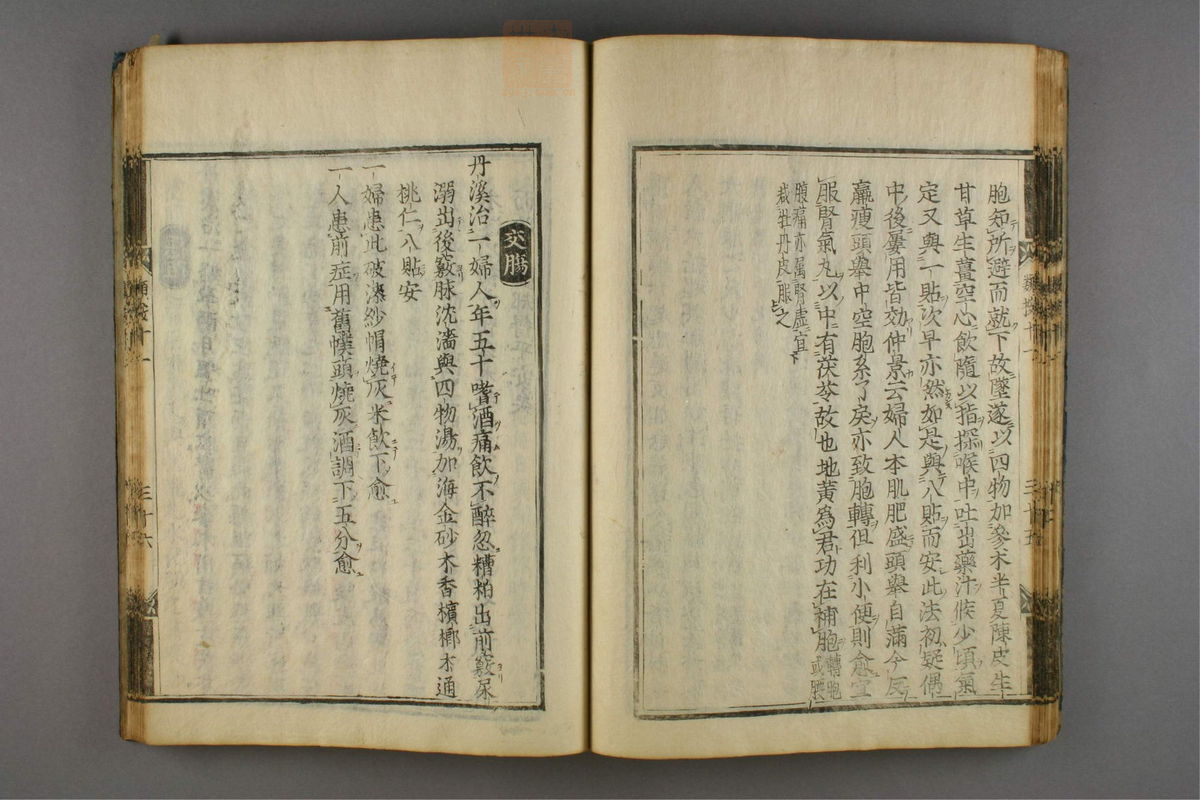 胞知所避而就下故墜遂以四物加參朮半夏陳皮生
甘草生薑空心飲隨以指探喉中吐出藥汁候少頃氣
定又與一貼次早亦然如是與八貼而安此法初疑偶
中後屢用皆効仲景云婦人本肌肥盛頭舉自滿今反
羸瘦頭舉中空胞系了戾亦致胞轉但利小便則愈宜
服腎氣丸以中有茯苓故也地黃為君功在補胞
轉胞
或腰
腹痛亦属腎虛宜
牡丹皮服之
三十五
交腸
丹溪治一婦人年五十嗜酒痛飲不醉忽糟粕出前竅尿
溺出後竅脉沈濇與四物湯加海金砂木香檳榔木通
桃仁八貼安
一婦患此破漆紗帽燒灰米飲下愈
一人患前症用舊幞頭燒灰酒調下五分愈
三十六